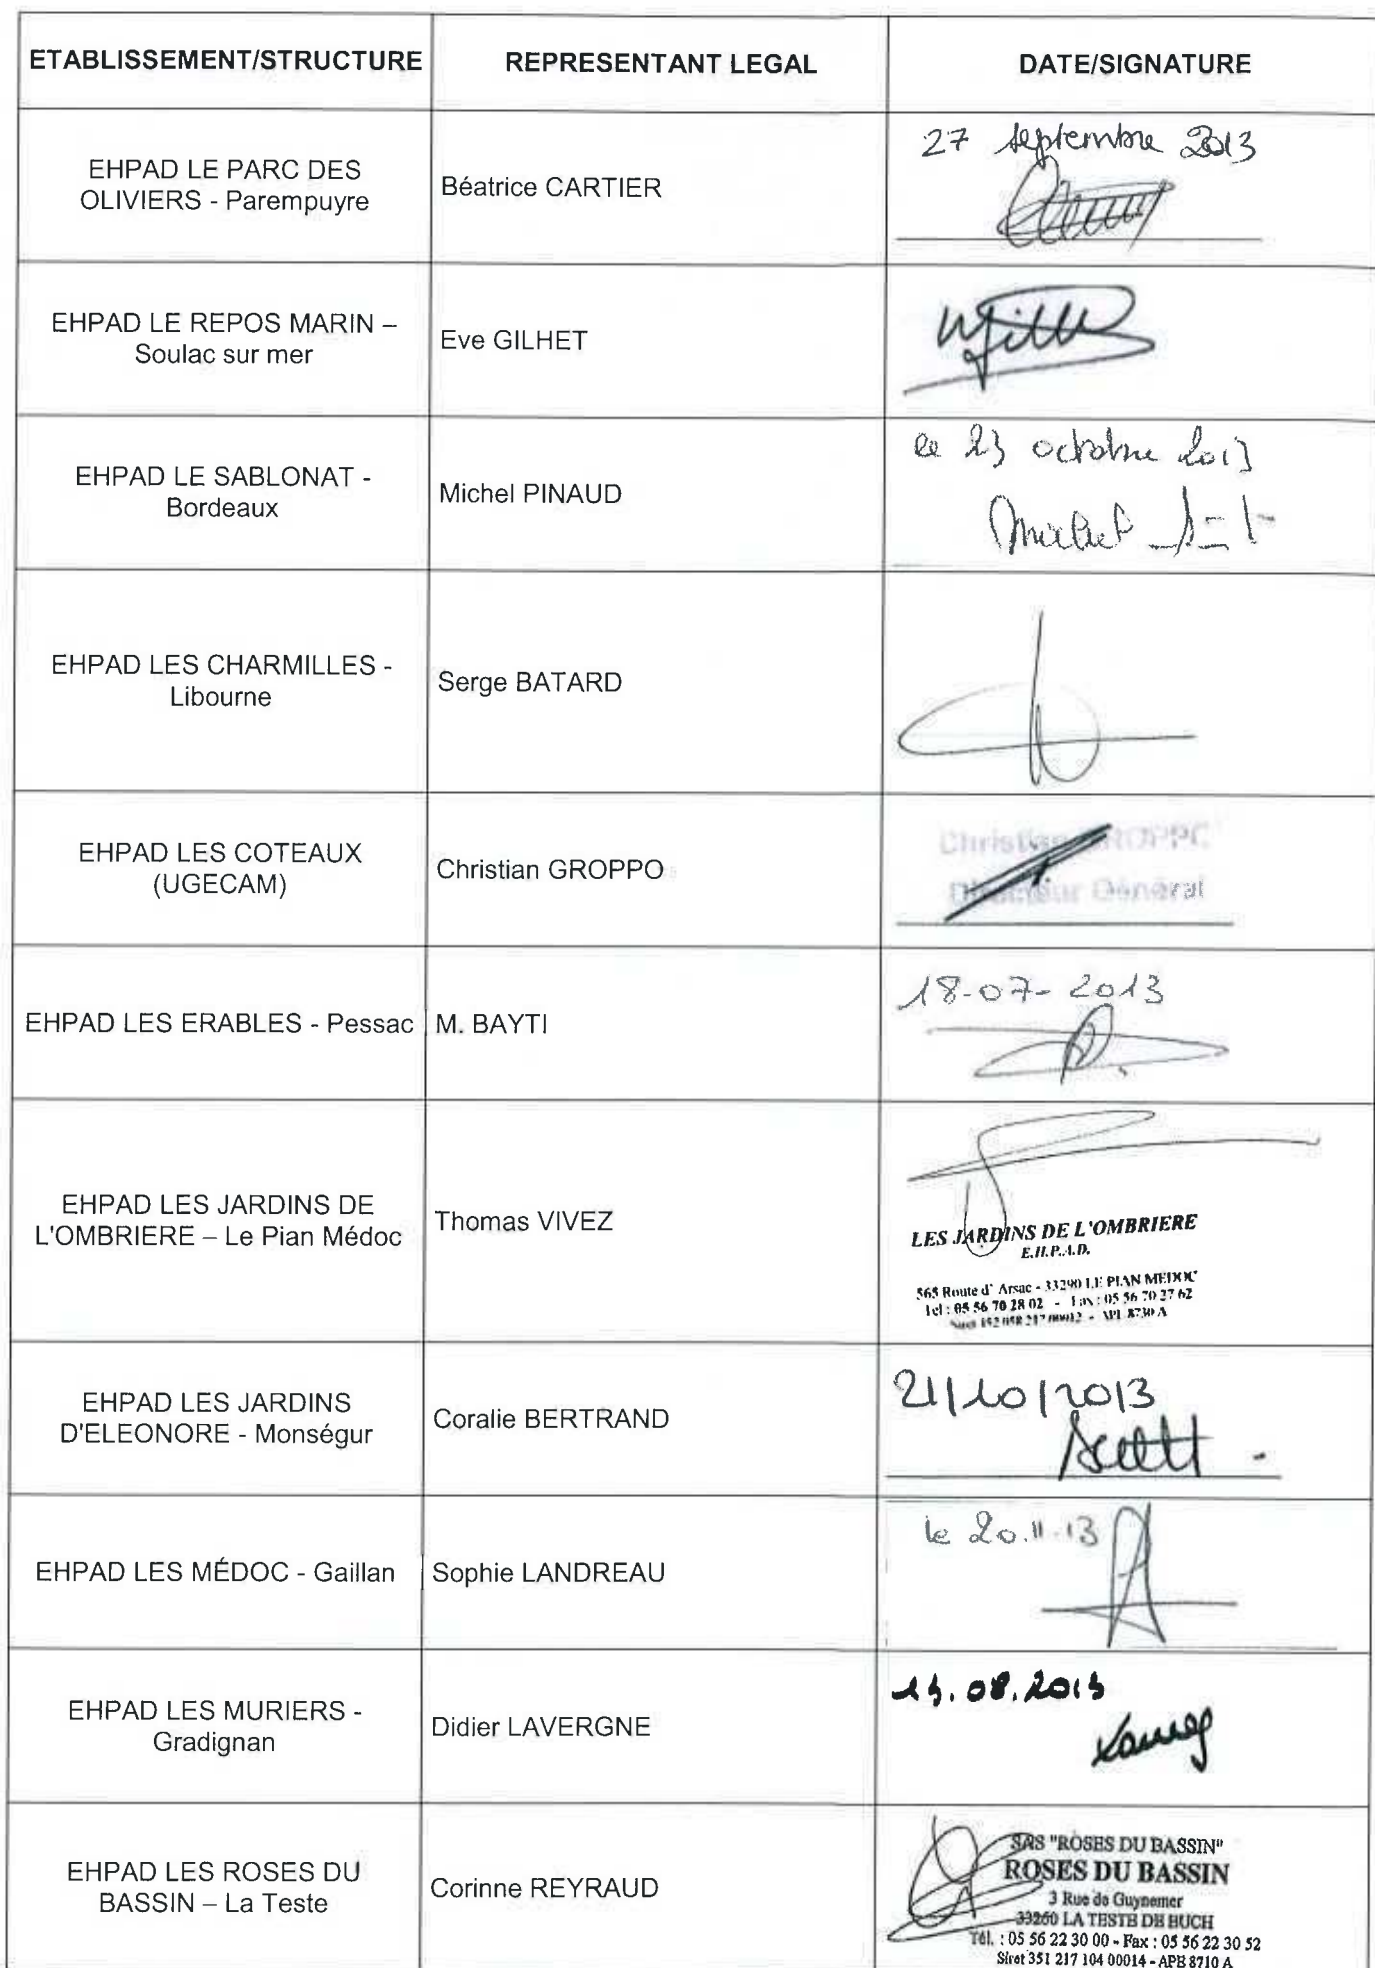 ETABLISSEMENT/STRUCTURE
REPRESENTANT LEGAL
DATE/SIGNATURE
EHPAD LE PARC DES
OLIVIERS - Parempuyre
Béatrice CARTIER
27 septembre 2013
EHPAD LE REPOS MARIN –
Soulac sur mer
Eve GILHET
EHPAD LE SABLONAT -
Bordeaux
Michel PINAUD
le 23 octobre 2013
Michel
EHPAD LES CHARMILLES -
Libourne
Serge BATARD
EHPAD LES COTEAUX
(UGECAM)
Christian GROPPO
Christian GROPPO
Directeur Général
EHPAD LES ERABLES - Pessac
M. BAYTI
18-07-2013
EHPAD LES JARDINS DE
L'OMBRIERE – Le Pian Médoc
Thomas VIVEZ
LES JARDINS DE L'OMBRIERE
E.H.P.A.D.
565 Route d' Arsac - 33290 LE PIAN MEDOC
Tel : 05 56 70 28 02 - Fax : 05 56 70 27 62
Siret 217 00012 - APE 8730 A
EHPAD LES JARDINS
D'ELEONORE - Monségur
Coralie BERTRAND
21/10/2013
EHPAD LES MÉDOC - Gaillan
Sophie LANDREAU
le 20.11.13
EHPAD LES MURIERS -
Gradignan
Didier LAVERGNE
.08.2013
EHPAD LES ROSES DU
BASSIN – La Teste
Corinne REYRAUD
SAS "ROSES DU BASSIN"
ROSES DU BASSIN
3 Rue de Guynemer
33260 LA TESTE DE BUCH
Tél. : 05 56 22 30 00 - Fax : 05 56 22 30 52
Siret 351 217 104 00014 - APE 8710 A